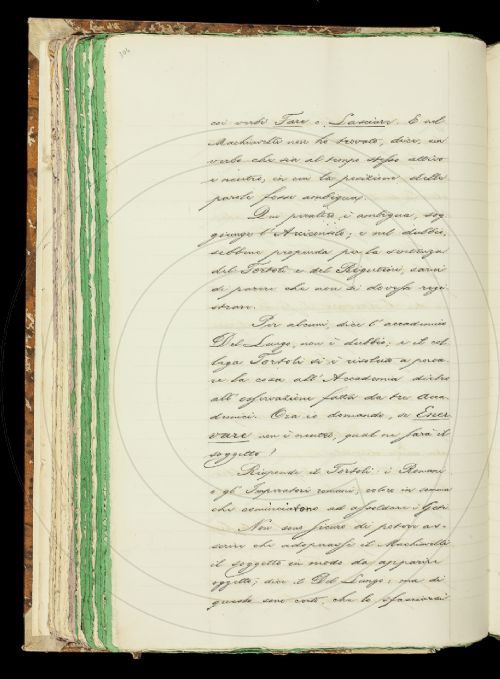 306
coi verbi Fare e Lasciare. E nel
Machiavelli non ho trovato, dice, un
verbo che sia al tempo stesso attivo
e neutro, in cui la posizione delle
parole fosse ambigua.
Qui peraltro è ambigua, sog-
giunge l'Arciconsolo; e nel dubbio,
sebbene propenda per la sentenza
del Tortoli e del Rigutini, sarei
di parere che non si dovesse regi-
strare.
Per alcuni, dice l'accademico
Del Lungo, non è dubbio; e il col-
lega Tortoli si è risoluto a porta-
re la cosa all'Accademia dietro
all'osservazione fatta da tre Acca-
demici. Ora io domando, se Ener-
vare non è neutro, qual ne sarà il
soggetto?
Risponde il Tortoli: i Romani
o gl'Imperatori romani, coloro in somma
che cominciarono ad assoldare i Goti.
Non sono sicuro di potere as-
serire che adoperasse il Machiavelli
il soggetto in modo da apparire
oggetto; dice il Del Lungo; ma di
questo sono certo, che lo